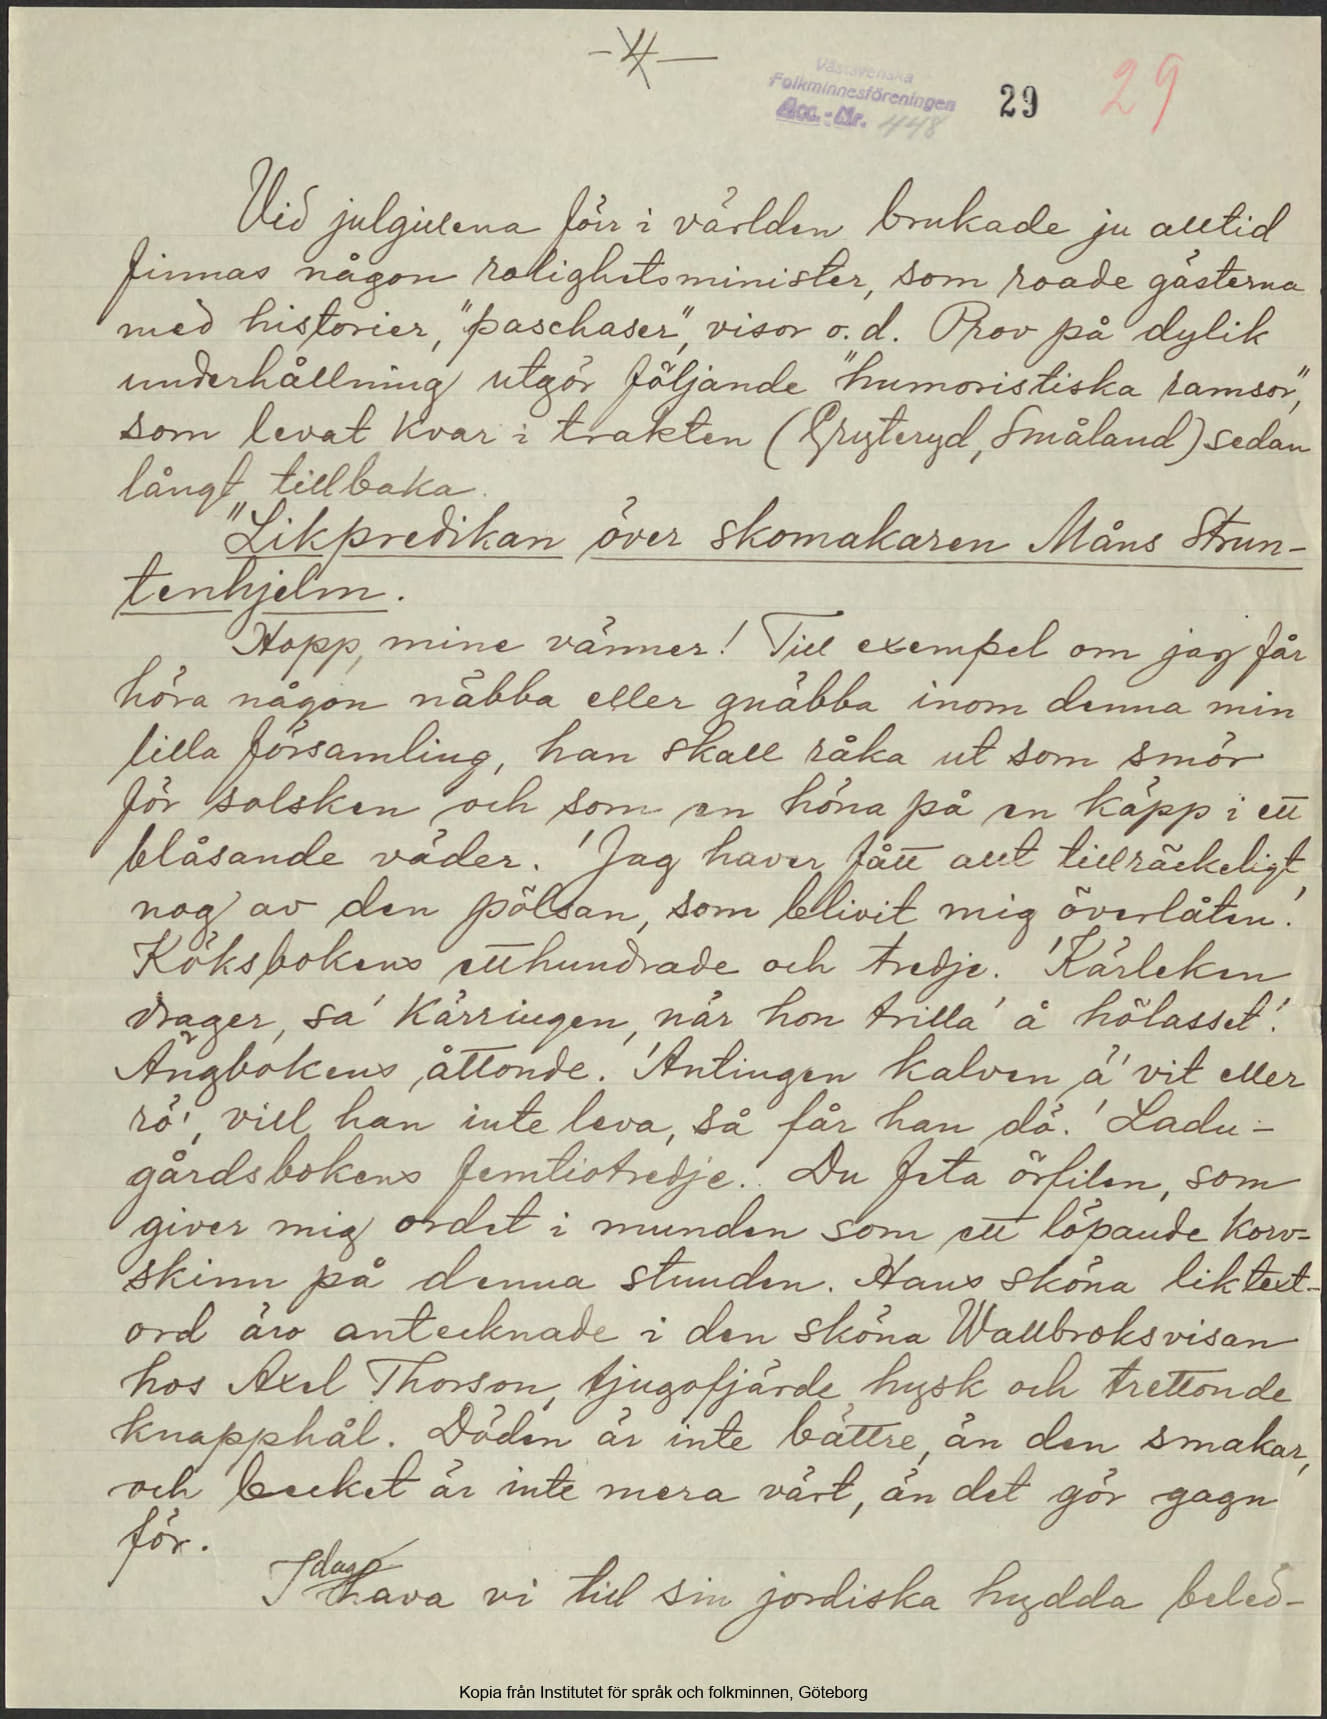 -4-
Västsvenska
Folkminnesföreningen
Acc.-Nr. 448
29
29
Vid julgillena förr i världen brukade ju alltid
finnas någon rolighetsminister, som roade gästerna
med historier, "paschaser", visor o.d. Prov på dylik
underhållning utgör följande "humoristiska ramsor",
som levat kvar i trakten (Gryteryd, Småland) sedan
långt tillbaka.
"Likpredikan över skomakaren Måns Strun-
tenhjelm.
Hopp, mine vänner! Till exempel om jag får
höra någon näbba eller gnäbba inom denna min
lilla församling, han skall råka ut som smör
för solsken och som en höna på en käpp i ett
blåsande väder. 'Jag haver fått allt tillräckeligt
nog av den pölsan, som blivit mig överlåten.'
Köksbokens etthundrade och tredje. 'Kärleken
drager, sa' kärringen, när hon trilla' å hölasset'.
Ängbokens åttonde. 'Antingen kalven ä' vit eller
rö', vill han inte leva, så får han dö.' Ladu-
gårdsbokens femtiotredje. Du feta örfilen, som
giver mig ordet i munden som ett löpande korv-
skinn på denna stunden. Hans sköna liktext-
ord äro antecknade i den sköna Wallbroksvisan
hos Axel Thorson, tjugofjärde hysk och trettonde
knapphål. Döden är inte bättre, än den smakar,
och becket är inte mera värt, än det gör gagn
för.
I dag hava vi till sin jordiska hydda beled-
Kopia från Institutet för språk och folkminnen, Göteborg